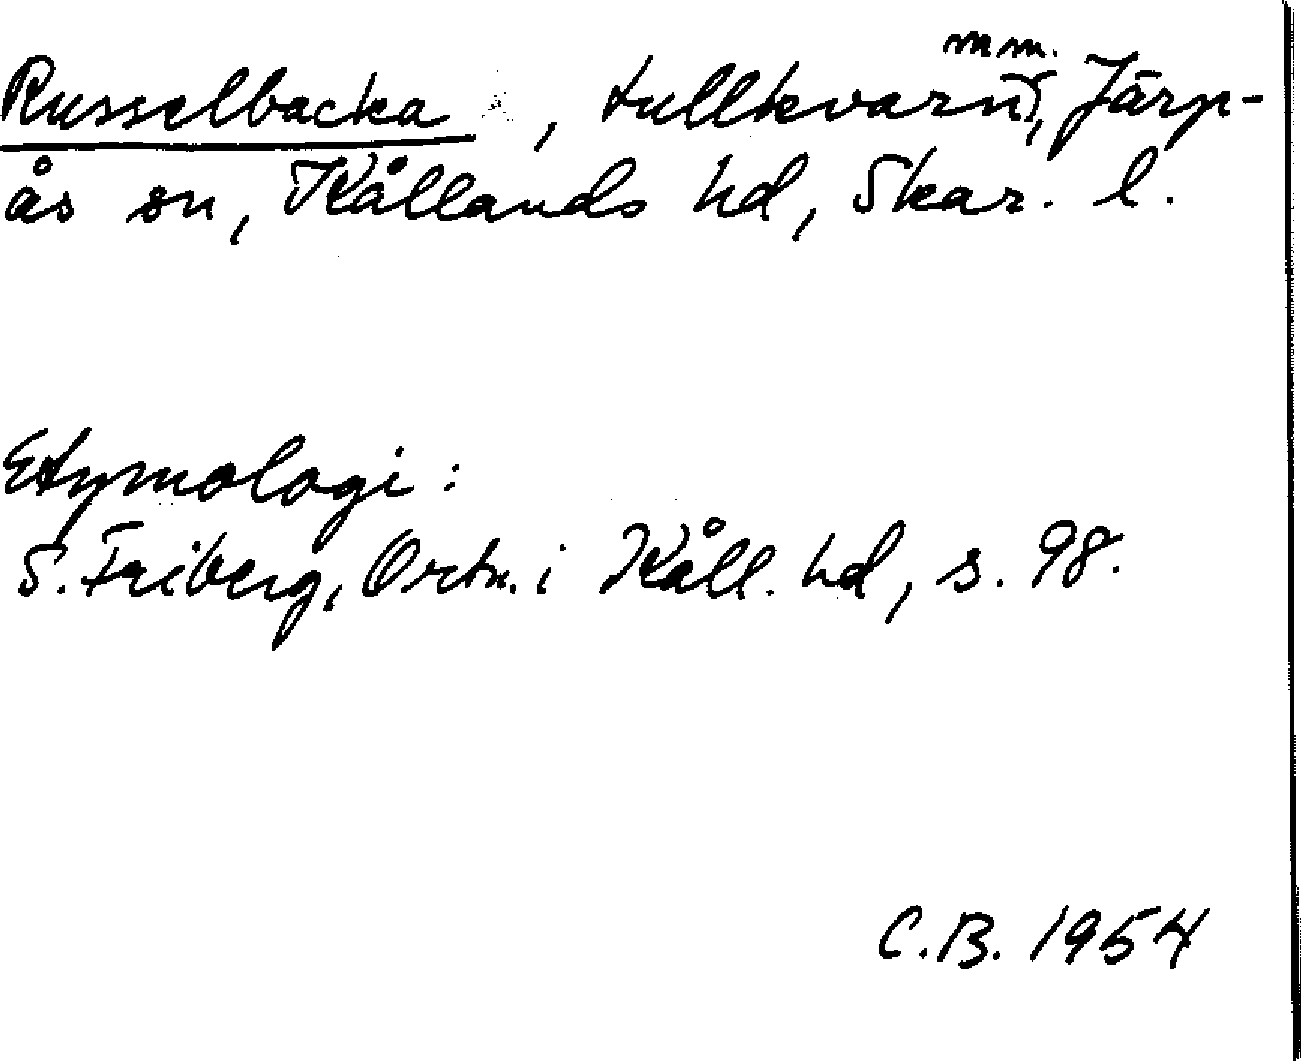 Russelbacka , tullkvarn mm., Järp-
ås sn, Kållands hd, Skar. l.
Etymologi:
S. Friberg, Ortn. i Kåll. hd, s. 98.
C.B. 1954